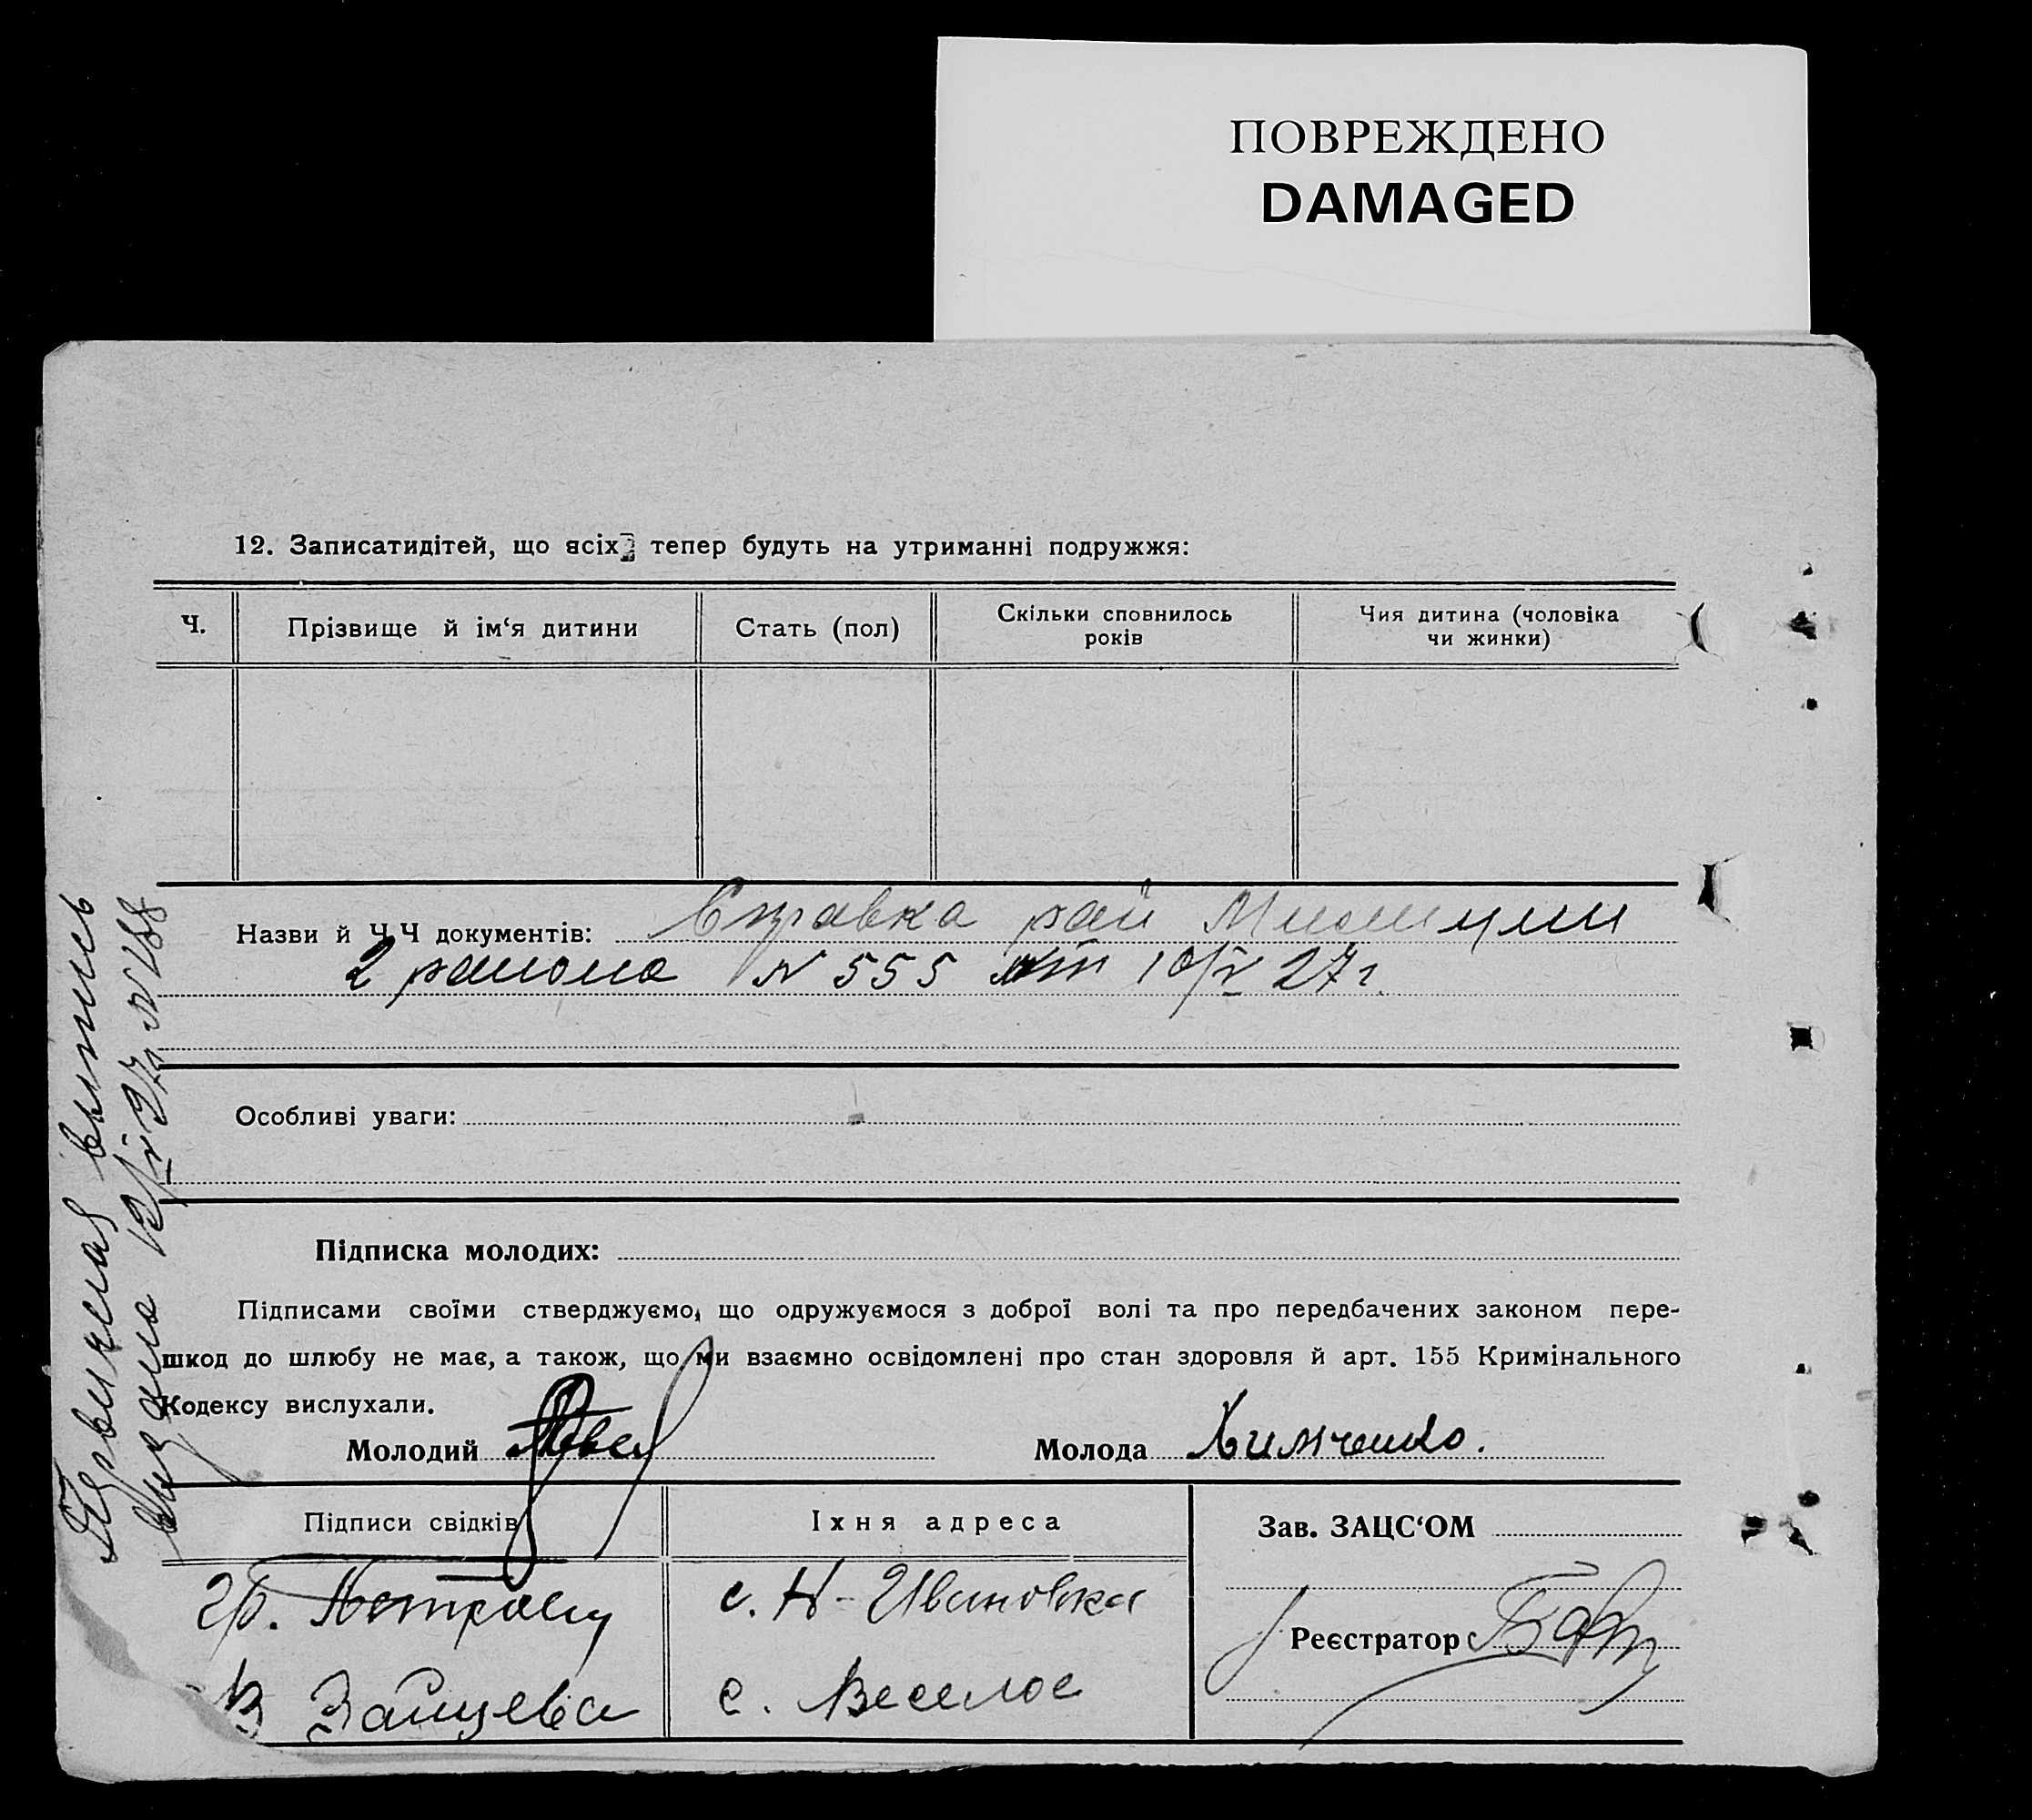 ПОВРЕЖДЕНО
DAMAGED
12. Записатидітей, що всіх тепер будуть на утриманні подружжя:
Ч.
Прізвище й ім‘я дитини
Стать (пол)
Скільки сповнилось
років
Чия дитина (чоловіка
чи жинки)
Назви й Ч Ч документів: Справка рай Милиции
2 района N 555 от 10/V 27 г.
Особливі уваги:
Підписка молодих:
Підписами своїми стверджуємо, що одружуємося з доброї волі та про передбачених законом пере-
шкод до шлюбу не має, а також, що ми взаємно освідомлені про стан здоровля й арт. 155 Кримінального
Кодексу вислухали.
Молодий
Молода Химченко.
Підписи свідків
Їхня адреса
Зав. ЗАЦС‘ОМ
гр.
с. Н-Ивановка
Реєстратор
В Зайцева
с. Веселое
Первичная выпись
выдана 12/V 27 г. N 188